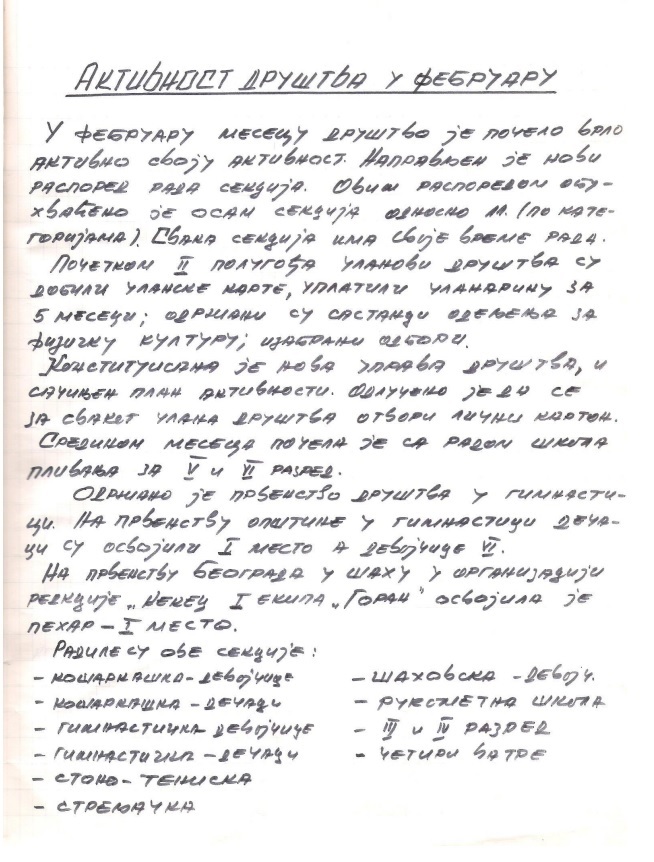 АКТИВНОСТ ДРУШТВА У ФЕБРУАРУ
У ФЕБРУАРУ МЕСЕЦУ ДРУШТВО ЈЕ ПОЧЕЛО ВРЛО
АКТИВНО СВОЈУ АКТИВНОСТ. НАПРАВЉЕН ЈЕ НОВИ
РАСПОРЕД РАДА СЕКЦИЈА. ОВИМ РАСПОРЕДОМ ОБУ-
ХВАЋЕНО ЈЕ ОСАМ СЕКЦИЈА ОДНОСНО 11. (ПО КАТЕ-
ГОРИЈАМА). СВАКА СЕКЦИЈА ИМА СВОЈЕ ВРЕМЕ РАДА.
ПОЧЕТКОМ II ПОЛУГОЂА ЧЛАНОВИ ДРУШТВА СУ
ДОБИЛИ ЧЛАНСКЕ КАРТЕ, УПЛАТИЛИ ЧЛАНАРИНУ ЗА
5 МЕСЕЦИ; ОДРЖАНИ СУ САСТАНЦИ ОДЕЉЕЊА ЗА
ФИЗИЧКУ КУЛТУРУ; ИЗАБРАНИ ОДБОРИ.
КОНСТИТУИСАНА ЈЕ НОВА УПРАВА ДРУШТВА, И
САЧИЊЕН ПЛАН АКТИВНОСТИ. ОДЛУЧЕНО ЈЕ ДА СЕ
ЗА СВАКОГ ЧЛАНА ДРУШТВА ОТВОРИ ЛИЧНИ КАРТОН.
СРЕДИНОМ МЕСЕЦА ПОЧЕЛА ЈЕ СА РАДОМ ШКОЛА
ПЛИВАЊА ЗА V И VI РАЗРЕД.
ОДРЖАНО ЈЕ ПРВЕНСТВО ДРУШТВА У ГИМНАСТИ-
ЦИ. НА ПРВЕНСТВУ ОПШТИНЕ У ГИМНАСТИЦИ ДЕЧА-
ЦИ СУ ОСВОЈИЛИ I МЕСТО А ДЕВОЈЧИЦЕ VI.
НА ПРВЕНСТВУ БЕОГРАДА У ШАХУ У ОРГАНИЗАЦИЈИ
РЕДКЦИЈЕ „КЕКЕЦ I ЕКИПА „ГОРАН" ОСВОЈИЛА ЈЕ
ПЕХАР – I МЕСТО.
РАДИЛЕ СУ ОВЕ СЕКЦИЈЕ:
– КОШАРКАШКА – ДЕВОЈЧИЦЕ
– КОШАРКАШКА – ДЕЧАЦИ
– ГИМНАСТИЧКА ДЕВОЈЧИЦЕ
– ГИМНАСТИЧКА – ДЕЧАЦИ
– СТОНО – ТЕНИСКА
– СТРЕЉАЧКА
– ШАХОВСКА – ДЕВОЈЧ.
– РУКОМЕТНА ШКОЛА
– III И IV РАЗРЕД
– ЧЕТИРИ ВАТРЕ